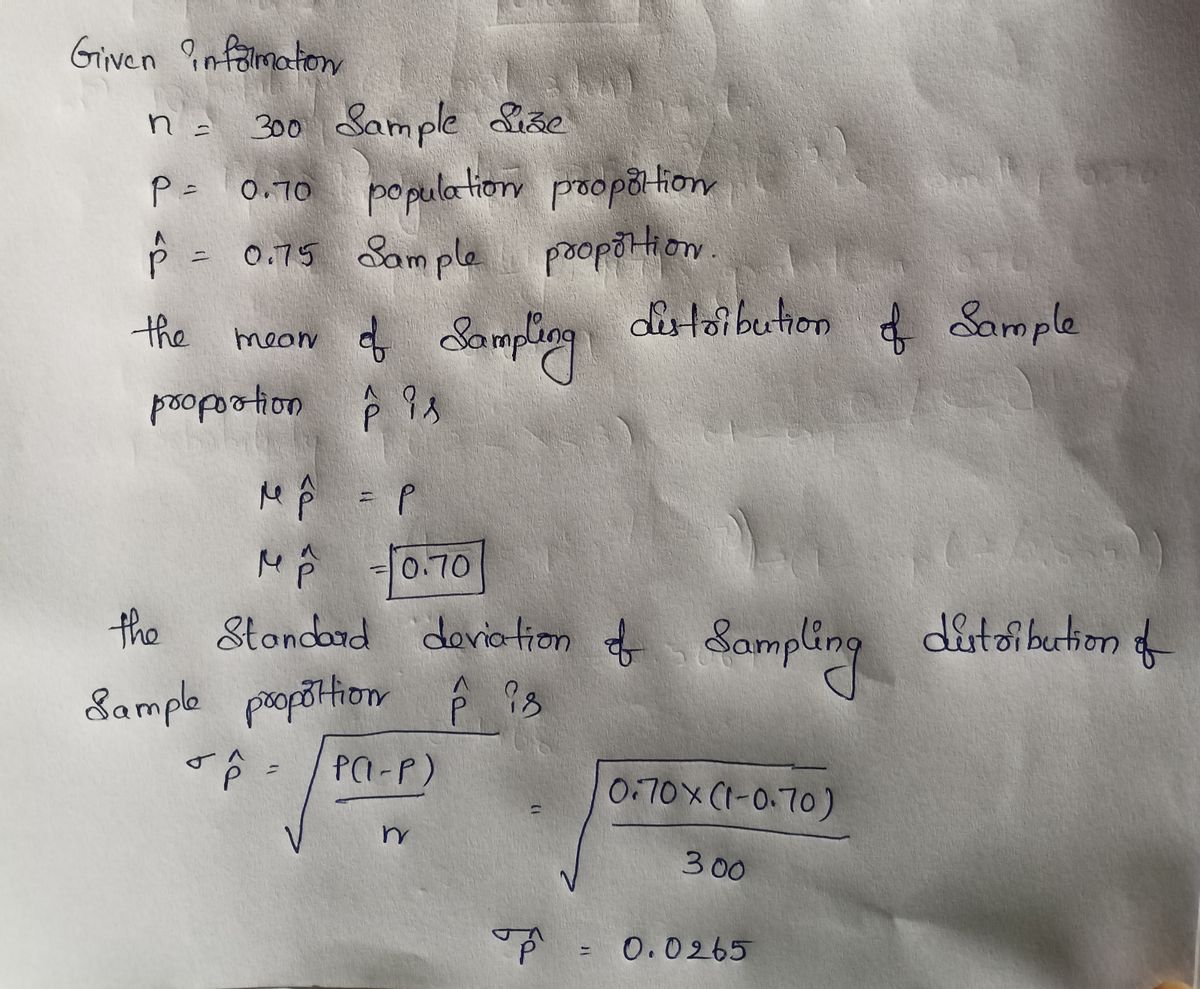 Given information
n = 300 Sample Size
P = 0.70 population proportion
p̂ = 0.75 Sample proportion.
the mean of Sampling distribution of Sample
proportion p̂ is
μ p̂ = P
μ p̂ = 0.70
the Standard deviation of Sampling distribution of
Sample proportion p̂ is
σ p̂ = √(P(1-P)/n) = √(0.70×(1-0.70)/300)
σp̂ = 0.0265